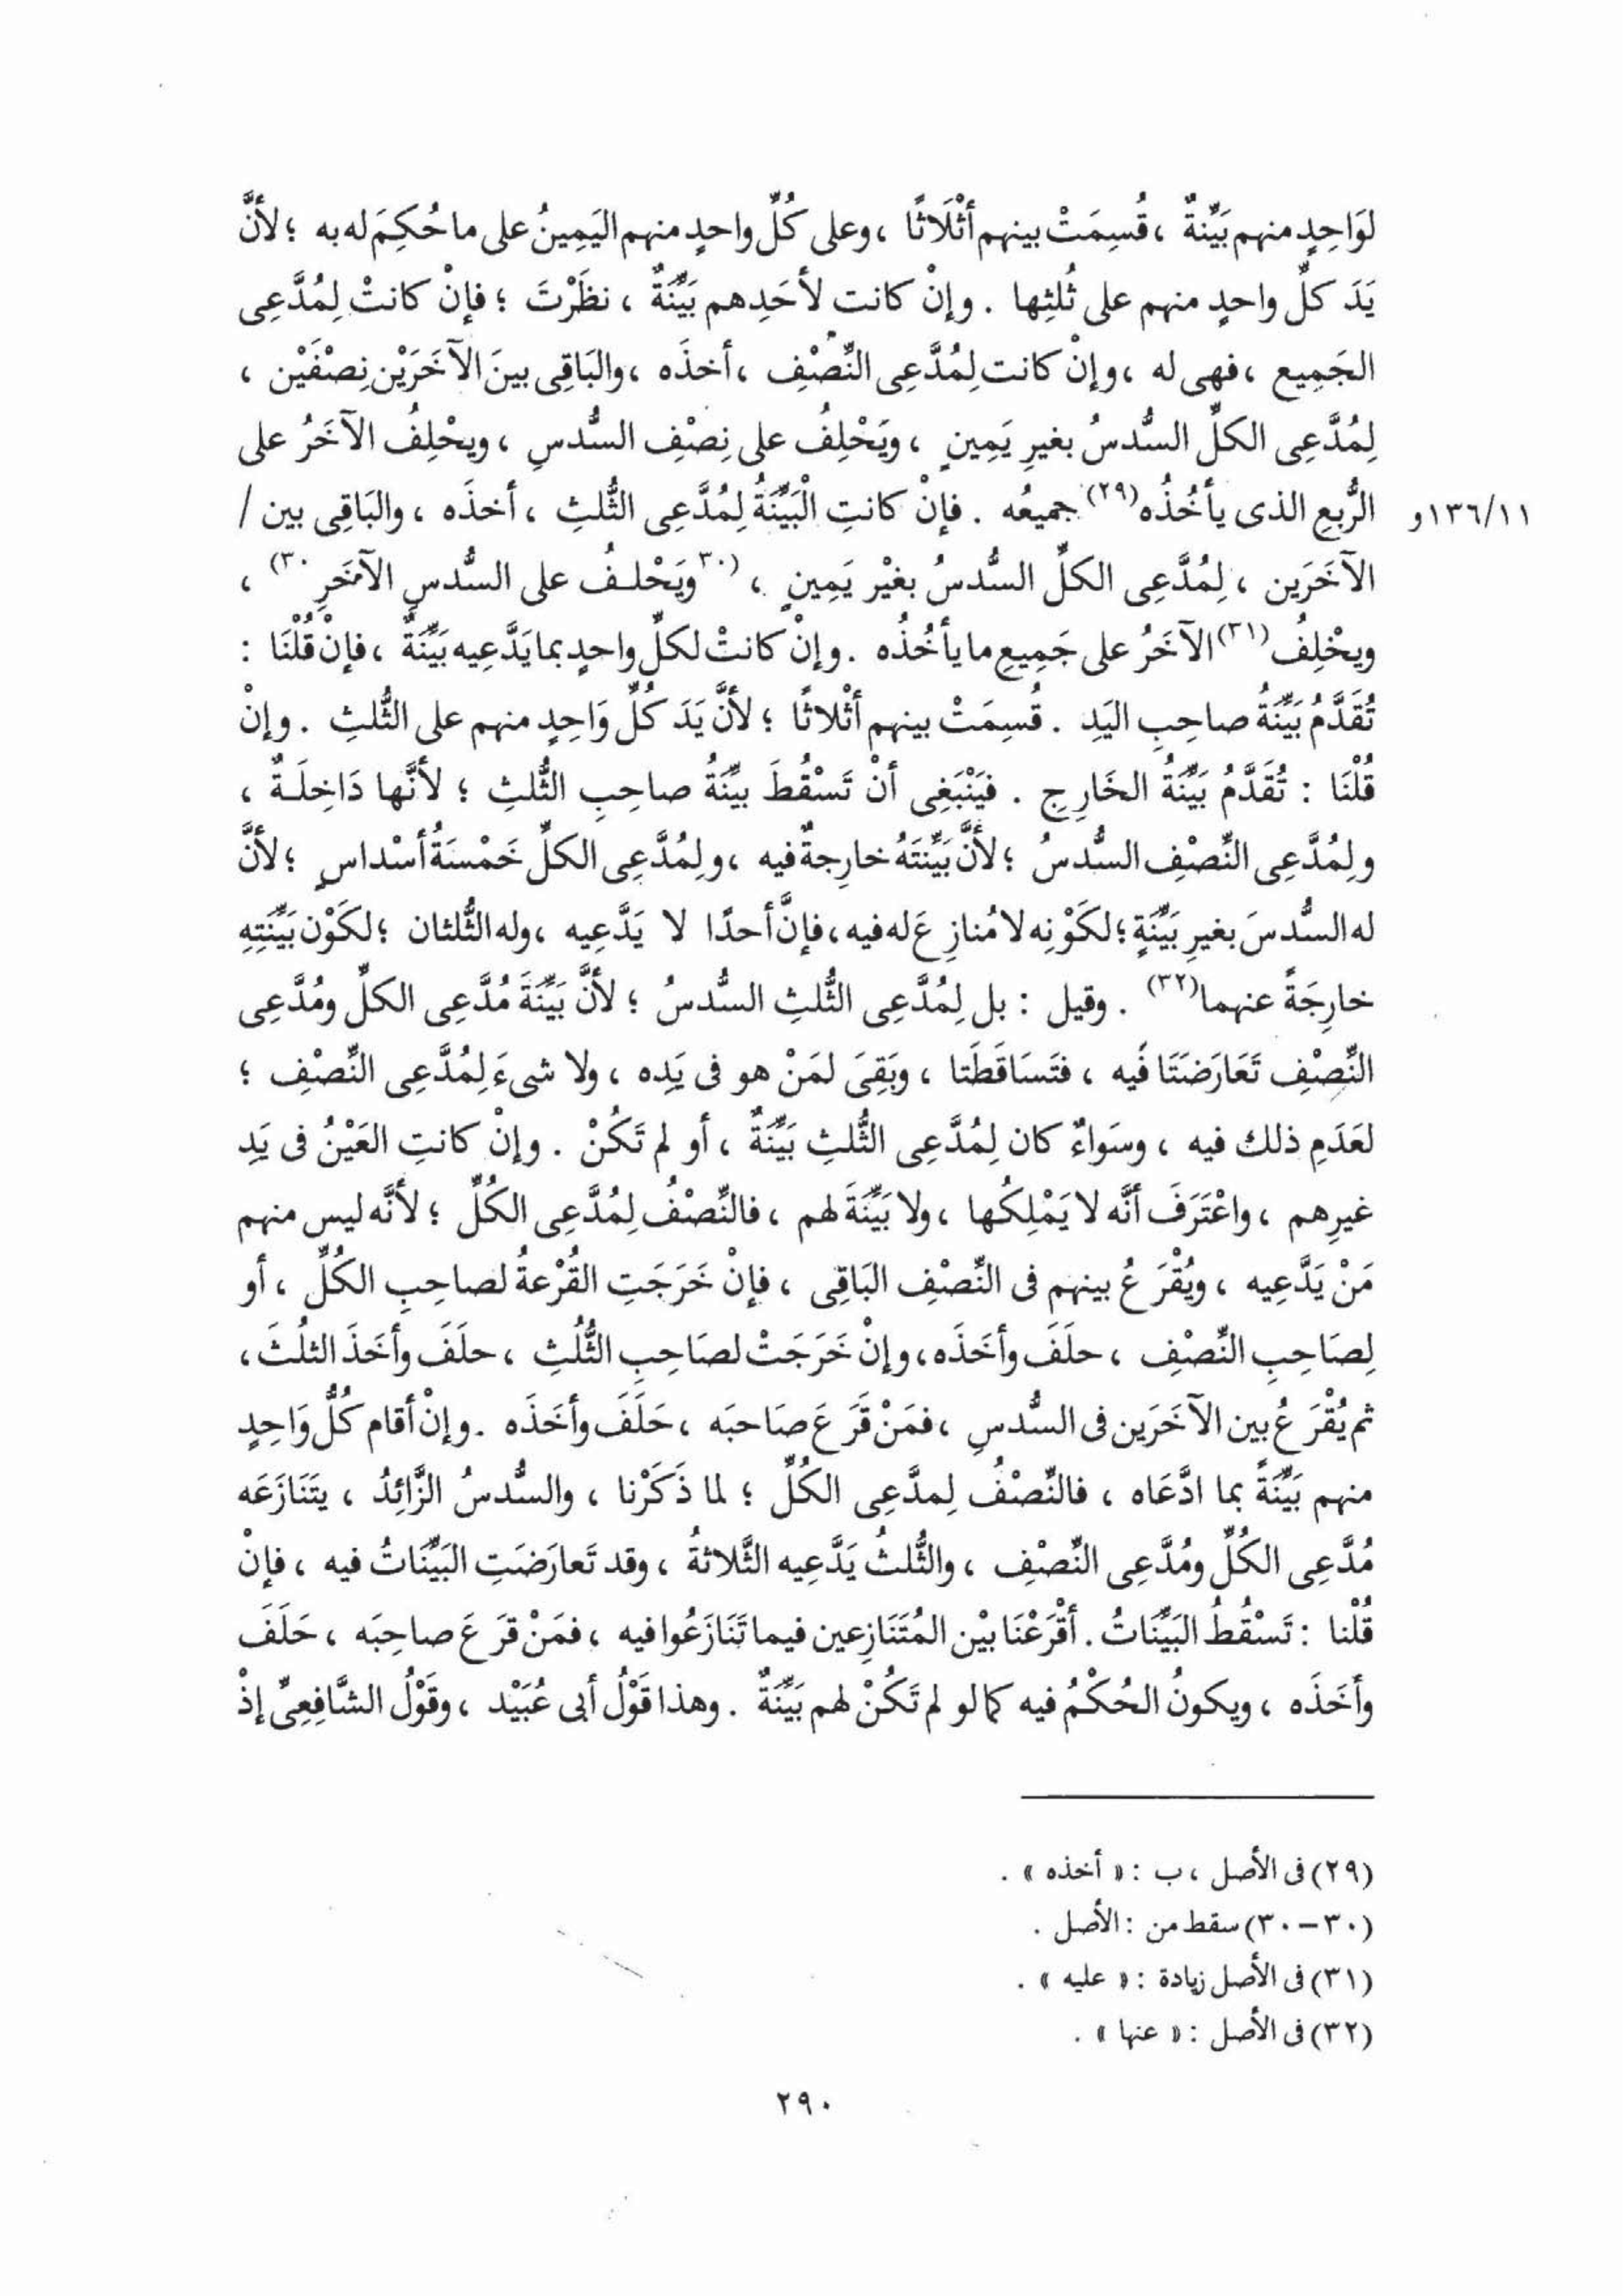 لوَاحِدٍ منهم بَيِّنةٌ ، قُسِمَتْ بينهم أثْلَاثًا ، وعلى كُلِّ واحدٍ منهم اليَمِينُ على ما حُكِمَ له به ؛ لأنَّ
يَدَ كلِّ واحدٍ منهم على ثُلثِها . وإنْ كانت لأحَدِهم بَيِّنَةٌ ، نظَرْتَ ؛ فإنْ كانتْ لِمُدَّعِى
الجَمِيع ، فهى له ، وإنْ كانت لِمُدَّعِى النِّصْفِ ، أخذَه ، والبَاقِى بينَ الآخَرَيْن نِصْفَيْن ،
لِمُدَّعِى الكلِّ السُّدسُ بغيرِ يَمِينٍ ، ويَحْلِفُ على نِصْفِ السُّدسِ ، ويحْلِفُ الآخَرُ على
الرُّبعِ الذى يأخُذُه(٢٩) جميعُه . فإنْ كانتِ الْبَيِّنَةُ لِمُدَّعِى الثُّلثِ ، أخذَه ، والبَاقِى بين / ١٣٦/١١و
الآخَرَين ، لِمُدَّعِى الكلِّ السُّدسُ بغَيْر يَمِينٍ ، (٣٠ويَحْلفُ على السُّدسِ الآخَرِ٣٠) ،
ويحْلِفُ(٣١) الآخَرُ على جَمِيعِ ما يأخُذُه . وإنْ كانتْ لكلِّ واحدٍ بما يَدَّعِيه بَيِّنَةٌ ، فإنْ قُلْنَا :
تُقَدَّمُ بَيِّنَةُ صاحِبِ اليَدِ . قُسِمَتْ بينهم أثْلاثًا ؛ لأنَّ يَدَ كُلِّ وَاحِدٍ منهم على الثُّلثِ . وإنْ
قُلْنَا : تُقَدَّمُ بَيِّنَةُ الخَارِجِ . فيَنْبَغِى أنْ تَسْقُطَ بيِّنَةُ صاحِبِ الثُّلثِ ؛ لأنَّها دَاخِلَةٌ ،
ولِمُدَّعِى النِّصْفِ السُّدسُ ؛ لأنَّ بَيِّنَتَهُ خارِجةٌ فيه ، ولِمُدَّعِى الكلِّ خَمْسَةُ أسْداسٍ ؛ لأنَّ
له السُّدسَ بغيرِ بَيِّنَةٍ ؛ لكَوْنِه لا مُنازِعَ له فيه ، فإنَّ أحدًا لا يَدَّعِيه ، وله الثُّلثان ؛ لكَوْن بَيِّنَتِهِ
خارِجَةً عنهما(٣٢) . وقيل : بل لِمُدَّعِى الثُّلثِ السُّدسُ ؛ لأنَّ بَيِّنَةَ مُدَّعِى الكلِّ ومُدَّعِى
النِّصْفِ تَعَارَضَتَا فيه ، فتَسَاقَطَتا ، وبَقِىَ لمَنْ هو فى يَدِه ، ولا شىءَ لِمُدَّعِى النِّصْفِ ؛
لعَدَمِ ذلك فيه ، وسَواءٌ كان لِمُدَّعِى الثُّلثِ بَيِّنَةٌ ، أو لم تَكُنْ . وإنْ كانتِ العَيْنُ فى يَدِ
غيرِهم ، واعْتَرَفَ أنَّه لا يَمْلِكُها ، ولا بَيِّنَةَ لهم ، فالنِّصْفُ لِمُدَّعِى الكُلِّ ؛ لأنَّه ليس منهم
مَنْ يَدَّعِيه ، ويُقْرَعُ بينهم فى النِّصْفِ البَاقِى ، فإنْ خَرَجَتِ القُرْعةُ لصاحِبِ الكُلِّ ، أو
لِصَاحِبِ النِّصْفِ ، حلَفَ وأخَذَه ، وإنْ خَرَجَتْ لصَاحِبِ الثُّلُثِ ، حلَفَ وأخَذَ الثلُثَ ،
ثم يُقْرَعُ بين الآخَرَين فى السُّدسِ ، فمَنْ قَرَعَ صَاحبَه ، حَلَفَ وأخَذَه . وإنْ أقام كُلُّ وَاحِدٍ
منهم بَيِّنَةً بما ادَّعَاه ، فالنِّصْفُ لِمدَّعِى الكُلِّ ؛ لما ذَكَرْنا ، والسُّدسُ الزَّائِدُ ، يتَنَازَعَه
مُدَّعِى الكُلِّ ومُدَّعِى النِّصْفِ ، والثُّلثُ يَدَّعِيه الثَّلاثةُ ، وقد تَعارَضَتِ البَيِّنَاتُ فيه ، فإنْ
قُلْنا : تَسْقُطُ البَيِّنَاتُ . أقْرَعْنَا بيْن المُتَنَازِعين فيما تَنَازَعُوا فيه ، فمَنْ قرَعَ صاحِبَه ، حَلَفَ
وأخَذَه ، ويكونُ الحُكْمُ فيه كما لو لم تَكُنْ لهم بَيِّنَةٌ . وهذا قَوْلُ أبى عُبَيْد ، وقَوْلُ الشَّافِعِىِّ إذْ
(٢٩) فى الأصل ، ب : « أخذه » .
(٣٠-٣٠) سقط من : الأصل .
(٣١) فى الأصل زيادة : « عليه » .
(٣٢) فى الأصل : « عنها » .
٢٩٠